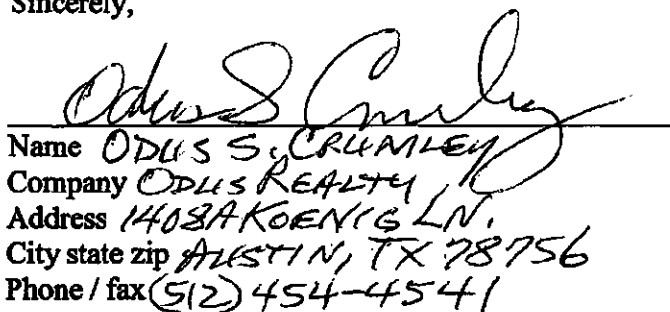 Sincerely,
Odus S Crumley
Name ODUS S. CRUMLEY
Company ODUS REALTY
Address 1408A KOENIG LN.
City state zip AUSTIN, TX 78756
Phone / fax (512) 454-4541